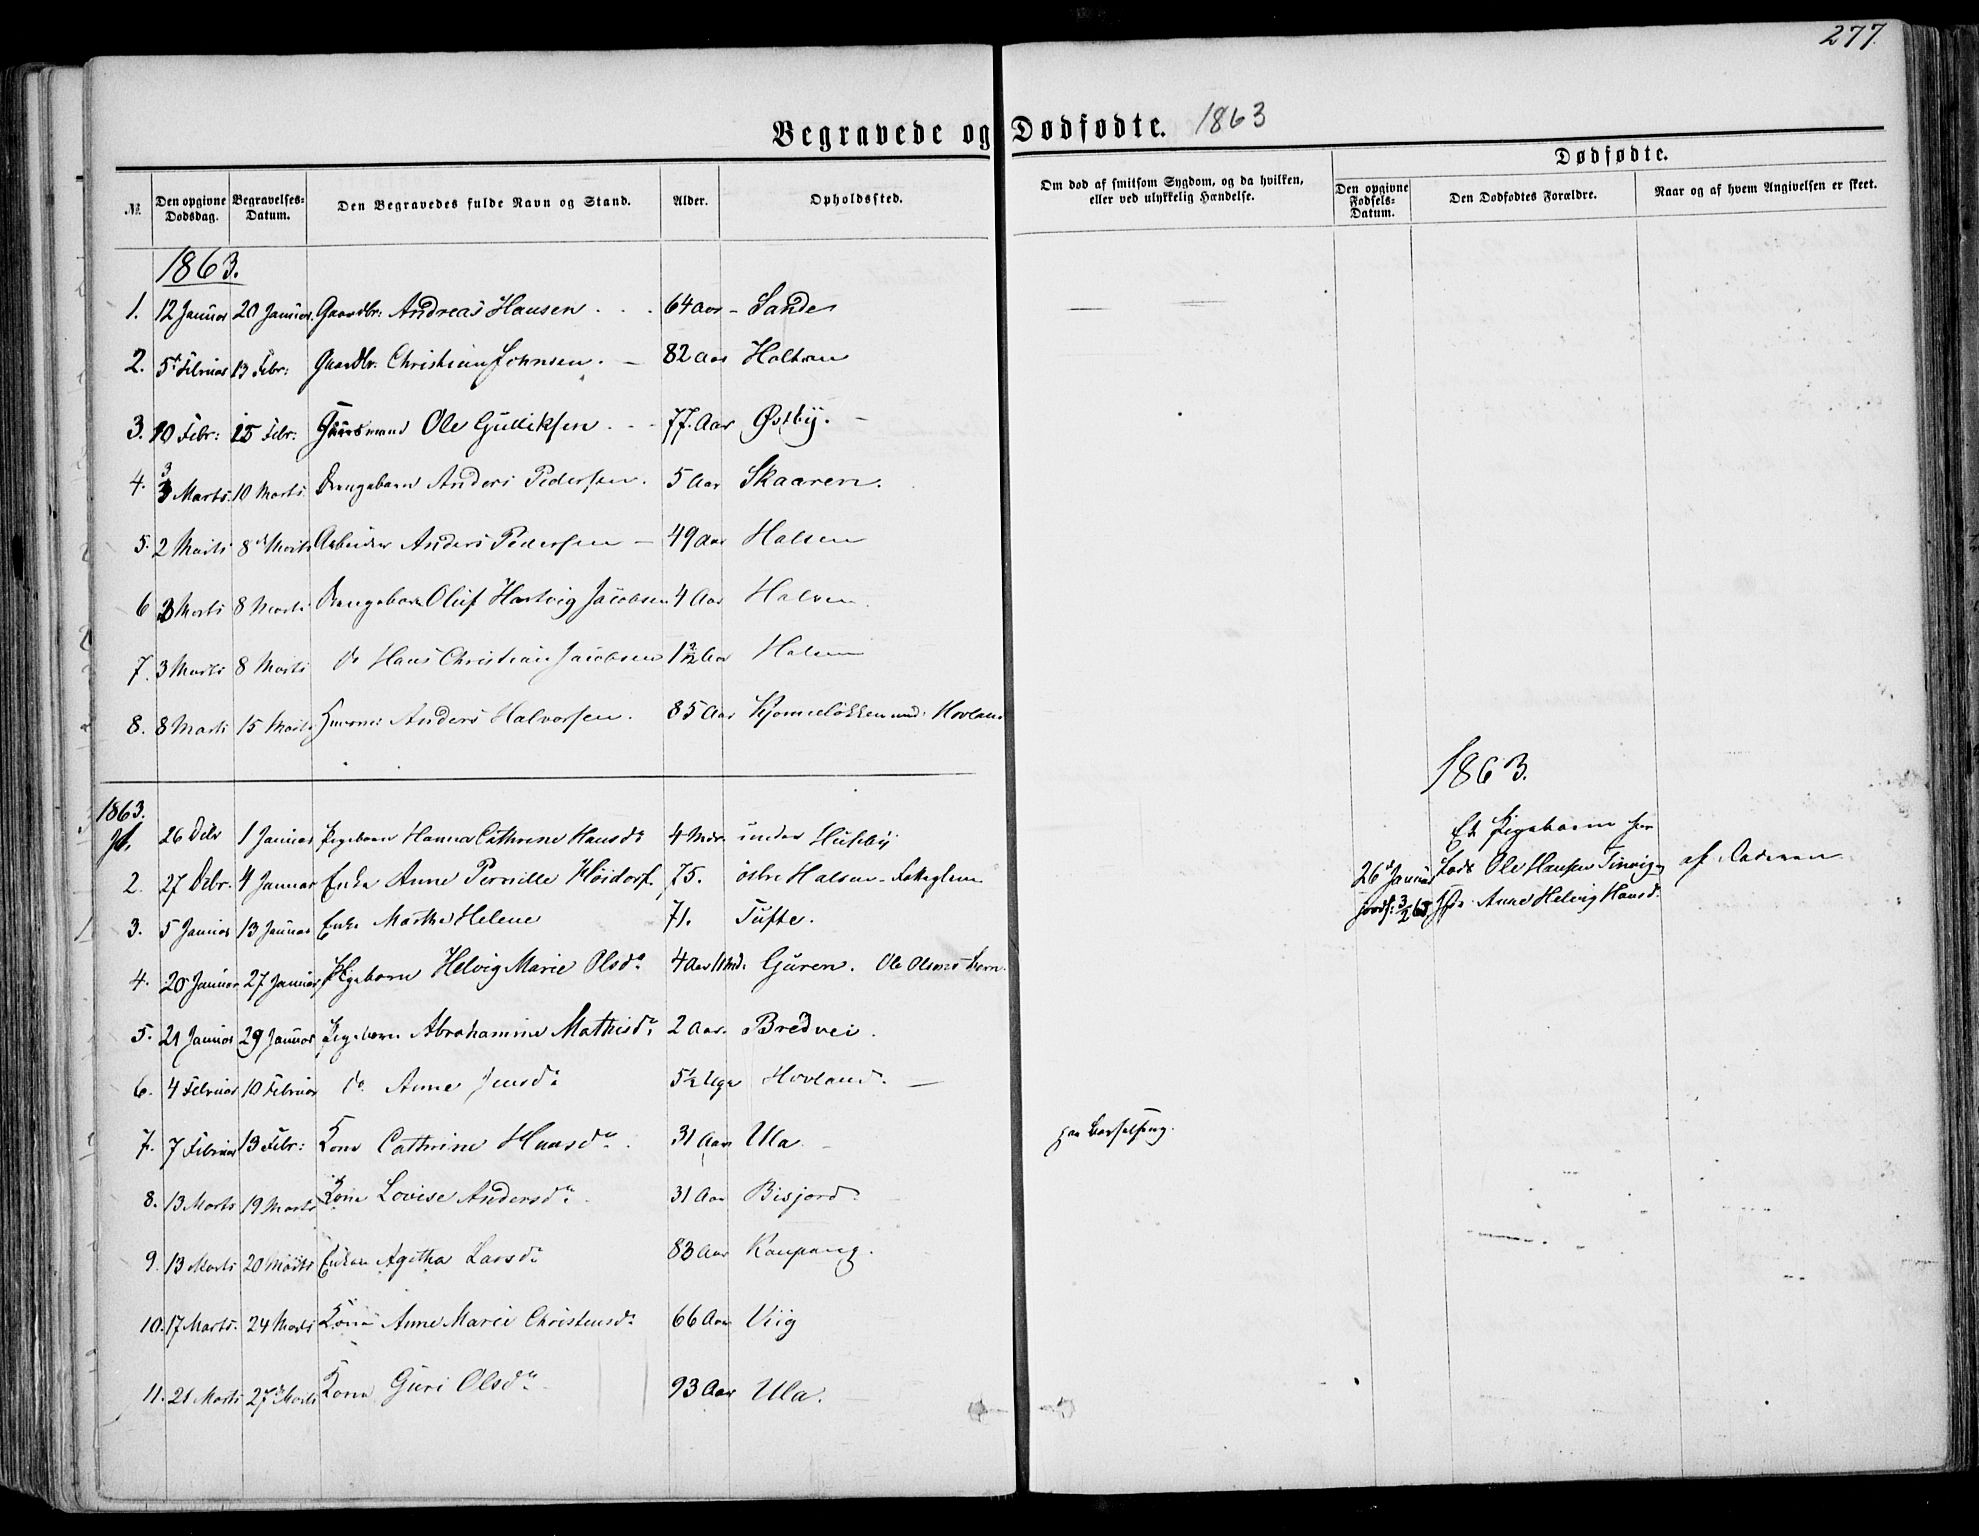 277.
Begravede og Dødfødte. 1863
Dødfødte.
№ Den opgivne Dødsdag. Begravelses-Datum. Den Begravedes fulde Navn og Stand. Alder. Opholdssted. Om død af smitsom Sygdom, og da hvilken, eller ved ulykkelig Hændelse. Den opgivne Fødsels-Datum. Den Dødfødtes Forældre. Naar og af hvem Angivelsen er skeet.
1863.
1. 12 Januar 20 Januar. Gaardbr: Andreas Hansen . . . 64 Aar – Sande
2. 5t Februar 13 Febr: Gaardbr. Christian Johnsen . – 82 Aar Holtan
3. 10 Febr: 15 Febr: Huusmand Ole Gulliksen . - - 77. Aar Østby. –
4. 3 Marts. 10 Marts. Drengebarn Anders Pedersen. 5 Aar Skaaren.
5. 2 Marts 8d Marts Arbeider Anders Pedersen – 49 Aar Halsen
6 3 Marts 8 Marts Drengebarn Oluf Hartvig Jacobsen 4 Aar Halsen
7. 3 Marts 8 Marts do Hans Christian Jacobsen 1 2/12 Aar Halsen
8. 8 Marts 15 Marts Anders Halvorsen. 85 Aar und: Hovland
1863.
1. 26 Debr 1 Januar Pigebarn Hanna Cathrine Hansdr 4 Mdr. under Huseby
2. 27 Debr. 4 Januar Enke Anne Pernille Høidorf. 75. østre Halsen –
3. 5 Januar 13 Januar Enke Marthe Helene 71. Tufte.
4. 20 Januar 27 Januar Pigebarn Helvig Marie Olsdr 4 Aar 11 Md: Guren. Ole Olsens Barn.
5. 21 Januar 29 Januar Pigebarn Abrahamine Mathisdr 2 Aar. Bredvei.
6. 4 Februar 10 Februar do Anne Jensdr 5½ Uge Hovland. –
7. 7 Februar 13 Febr: Kone Cathrine Hansdr. 31 Aar Ula. – paa Barselseng.
8. 13 Marts 19 Marts Kone Lovise Andersdr 31 Aar Bisjord.
9. 13 Marts 20 Marts Enken Agetha Larsdr 83 Aar Kaupang.
10. 17 Marts. 24 Marts Kone Anne Marie Christensdr 66 Aar Viig
11. 21 Marts 27 Marts Kone Guri Olsdr 93 Aar Ula.
1863.
Et Pigebarn
26d Januar Lods Ole Hansen af Faderen
jordf: 3/2 63 Anne Helvig Hansd.